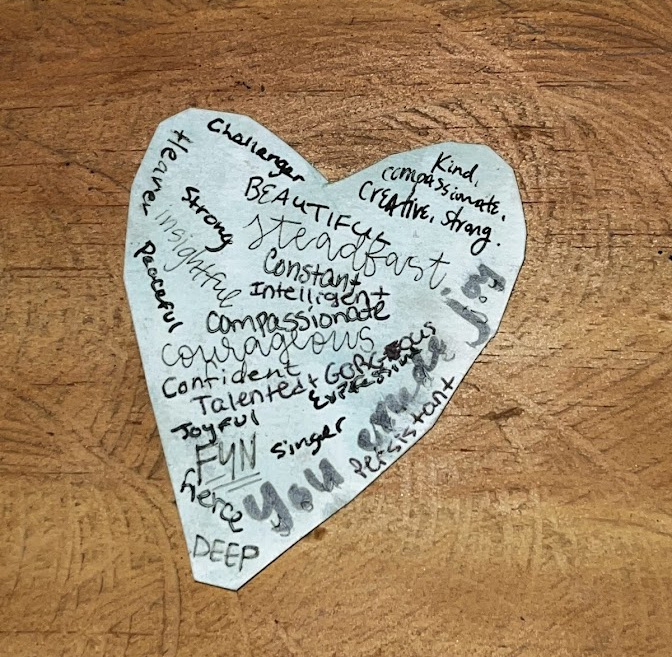 Challenger
Heaven
Kind,
compassionate,
CREATIVE, Strong.
BEAUTIFUL
Strong
steadfast
insightful
Constant
Intelligent
Peaceful
compassionate
courageous
Confident
GORGEOUS
Talented +
Expressive
Joyful
You emit joy
FUN
singer
Persistant
fierce
DEEP